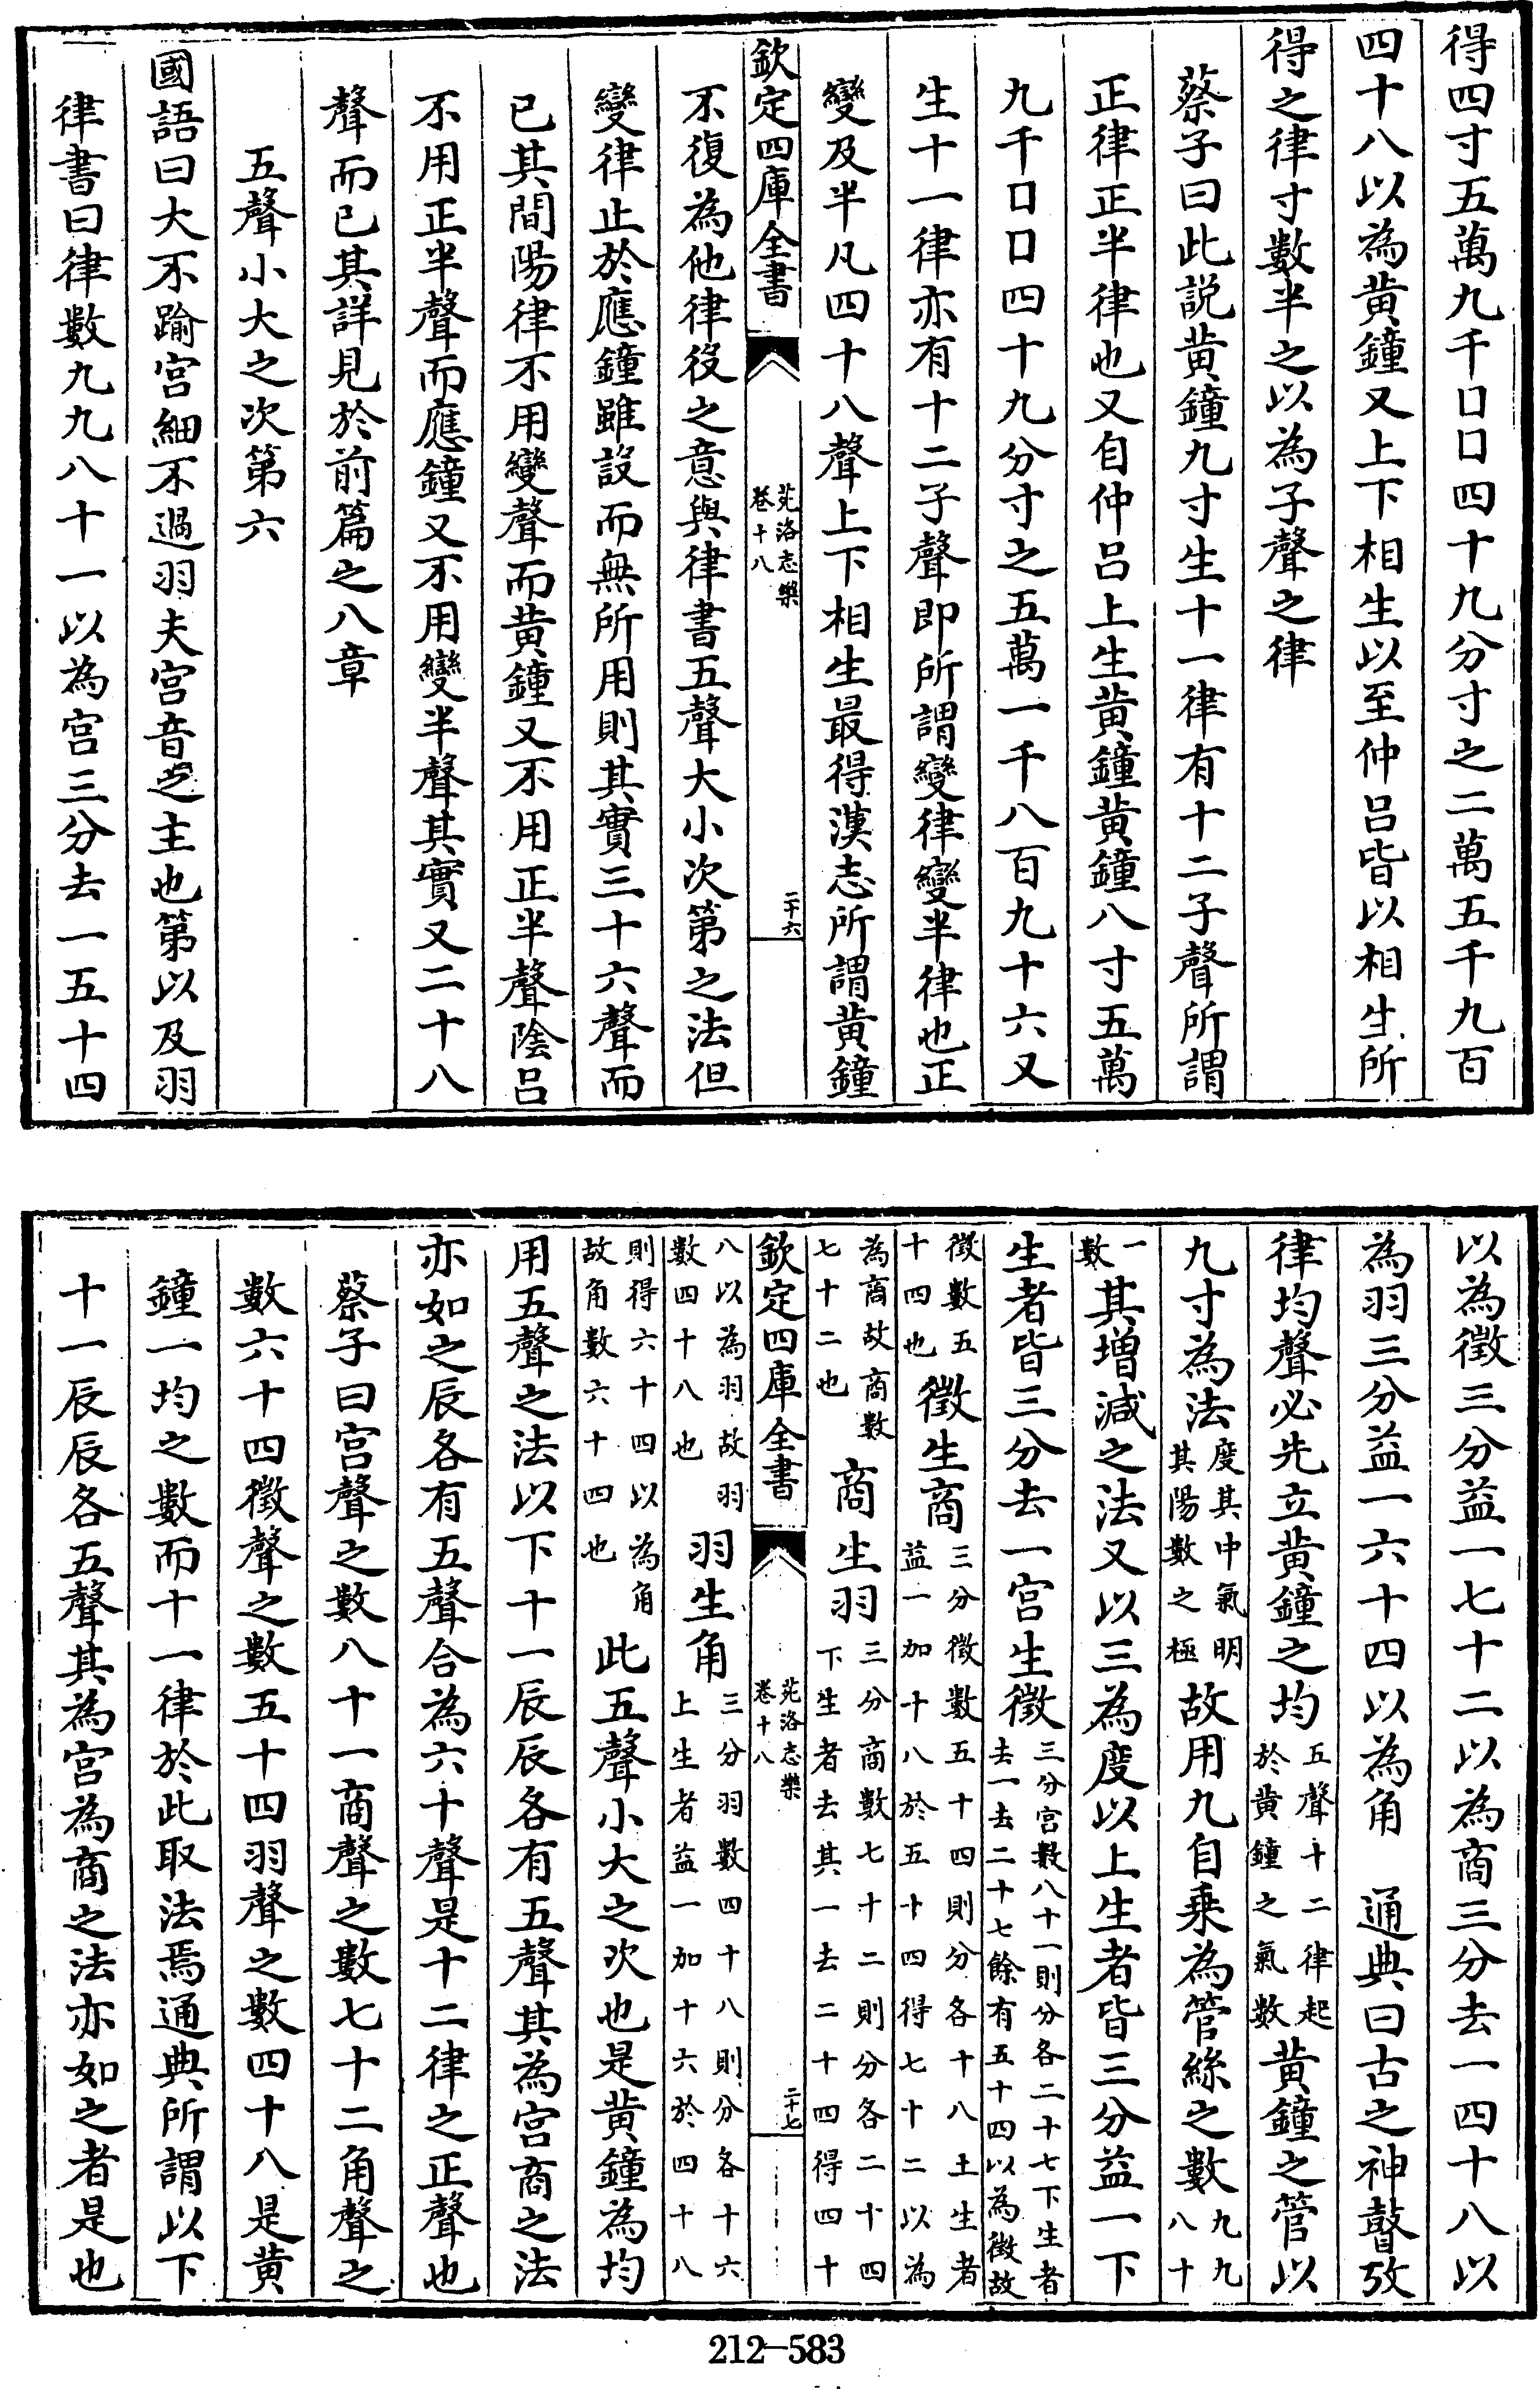 得四寸五萬九千口口四十九分寸之二萬五千九百
四十八以為黃鐘又上下相生以至仲呂皆以相生所
得之律寸數半之以為子聲之律
蔡子曰此説黃鐘九寸生十一律有十二子聲所謂
正律正半律也又自仲呂上生黃鐘黃鐘八寸五萬
九千口口四十九分寸之五萬一千八百九十六又
生十一律亦有十二子聲即所謂變律變半律也正
變及半凡四十八聲上下相生最得漢志所謂黃鐘
欽定四庫全書
苑洛志樂
卷十八
二十六
不復為他律役之意與律書五聲大小次第之法但
變律止於應鐘雖設而無所用則其實三十六聲而
已其間陽律不用變聲而黃鐘又不用正半聲陰呂
不用正半聲而應鐘又不用變半聲其實又二十八
聲而已其詳見於前篇之八章
五聲小大之次第六
國語曰大不踰宮細不過羽夫宮音之主也第以及羽
律書曰律數九九八十一以為宮三分去一五十四
以為徵三分益一七十二以為商三分去一四十八以
為羽三分益一六十四以為角　通典曰古之神瞽攷
律均聲必先立黃鐘之均五聲十二律起
於黃鐘之氣數黃鐘之管以
九寸為法度其中氣明
其陽數之極故用九自乘為管絲之數九九
八十
一
數其增減之法又以三為度以上生者皆三分益一下
生者皆三分去一宮生徵三分宮數八十一則分各二十七下生者
去一去二十七餘有五十四以為徵故
徵數五
十四也徵生商三分徵數五十四則分各十八上生者
益一加十八於五十四得七十二以為
為商故商數
七十二也商生羽三分商數七十二則分各二十四
下生者去其一去二十四得四十
欽定四庫全書
苑洛志樂
卷十八
二十七
八以為羽故羽
數四十八也羽生角三分羽數四十八則分各十六
上生者益一加十六於四十八
則得六十四以為角
故角數六十四也此五聲小大之次也是黃鐘為均
用五聲之法以下十一辰辰各有五聲其為宮商之法
亦如之辰各有五聲合為六十聲是十二律之正聲也
蔡子曰宮聲之數八十一商聲之數七十二角聲之
數六十四徵聲之數五十四羽聲之數四十八是黃
鐘一均之數而十一律於此取法焉通典所謂以下
十一辰辰各五聲其為宮為商之法亦如之者是也
212-583